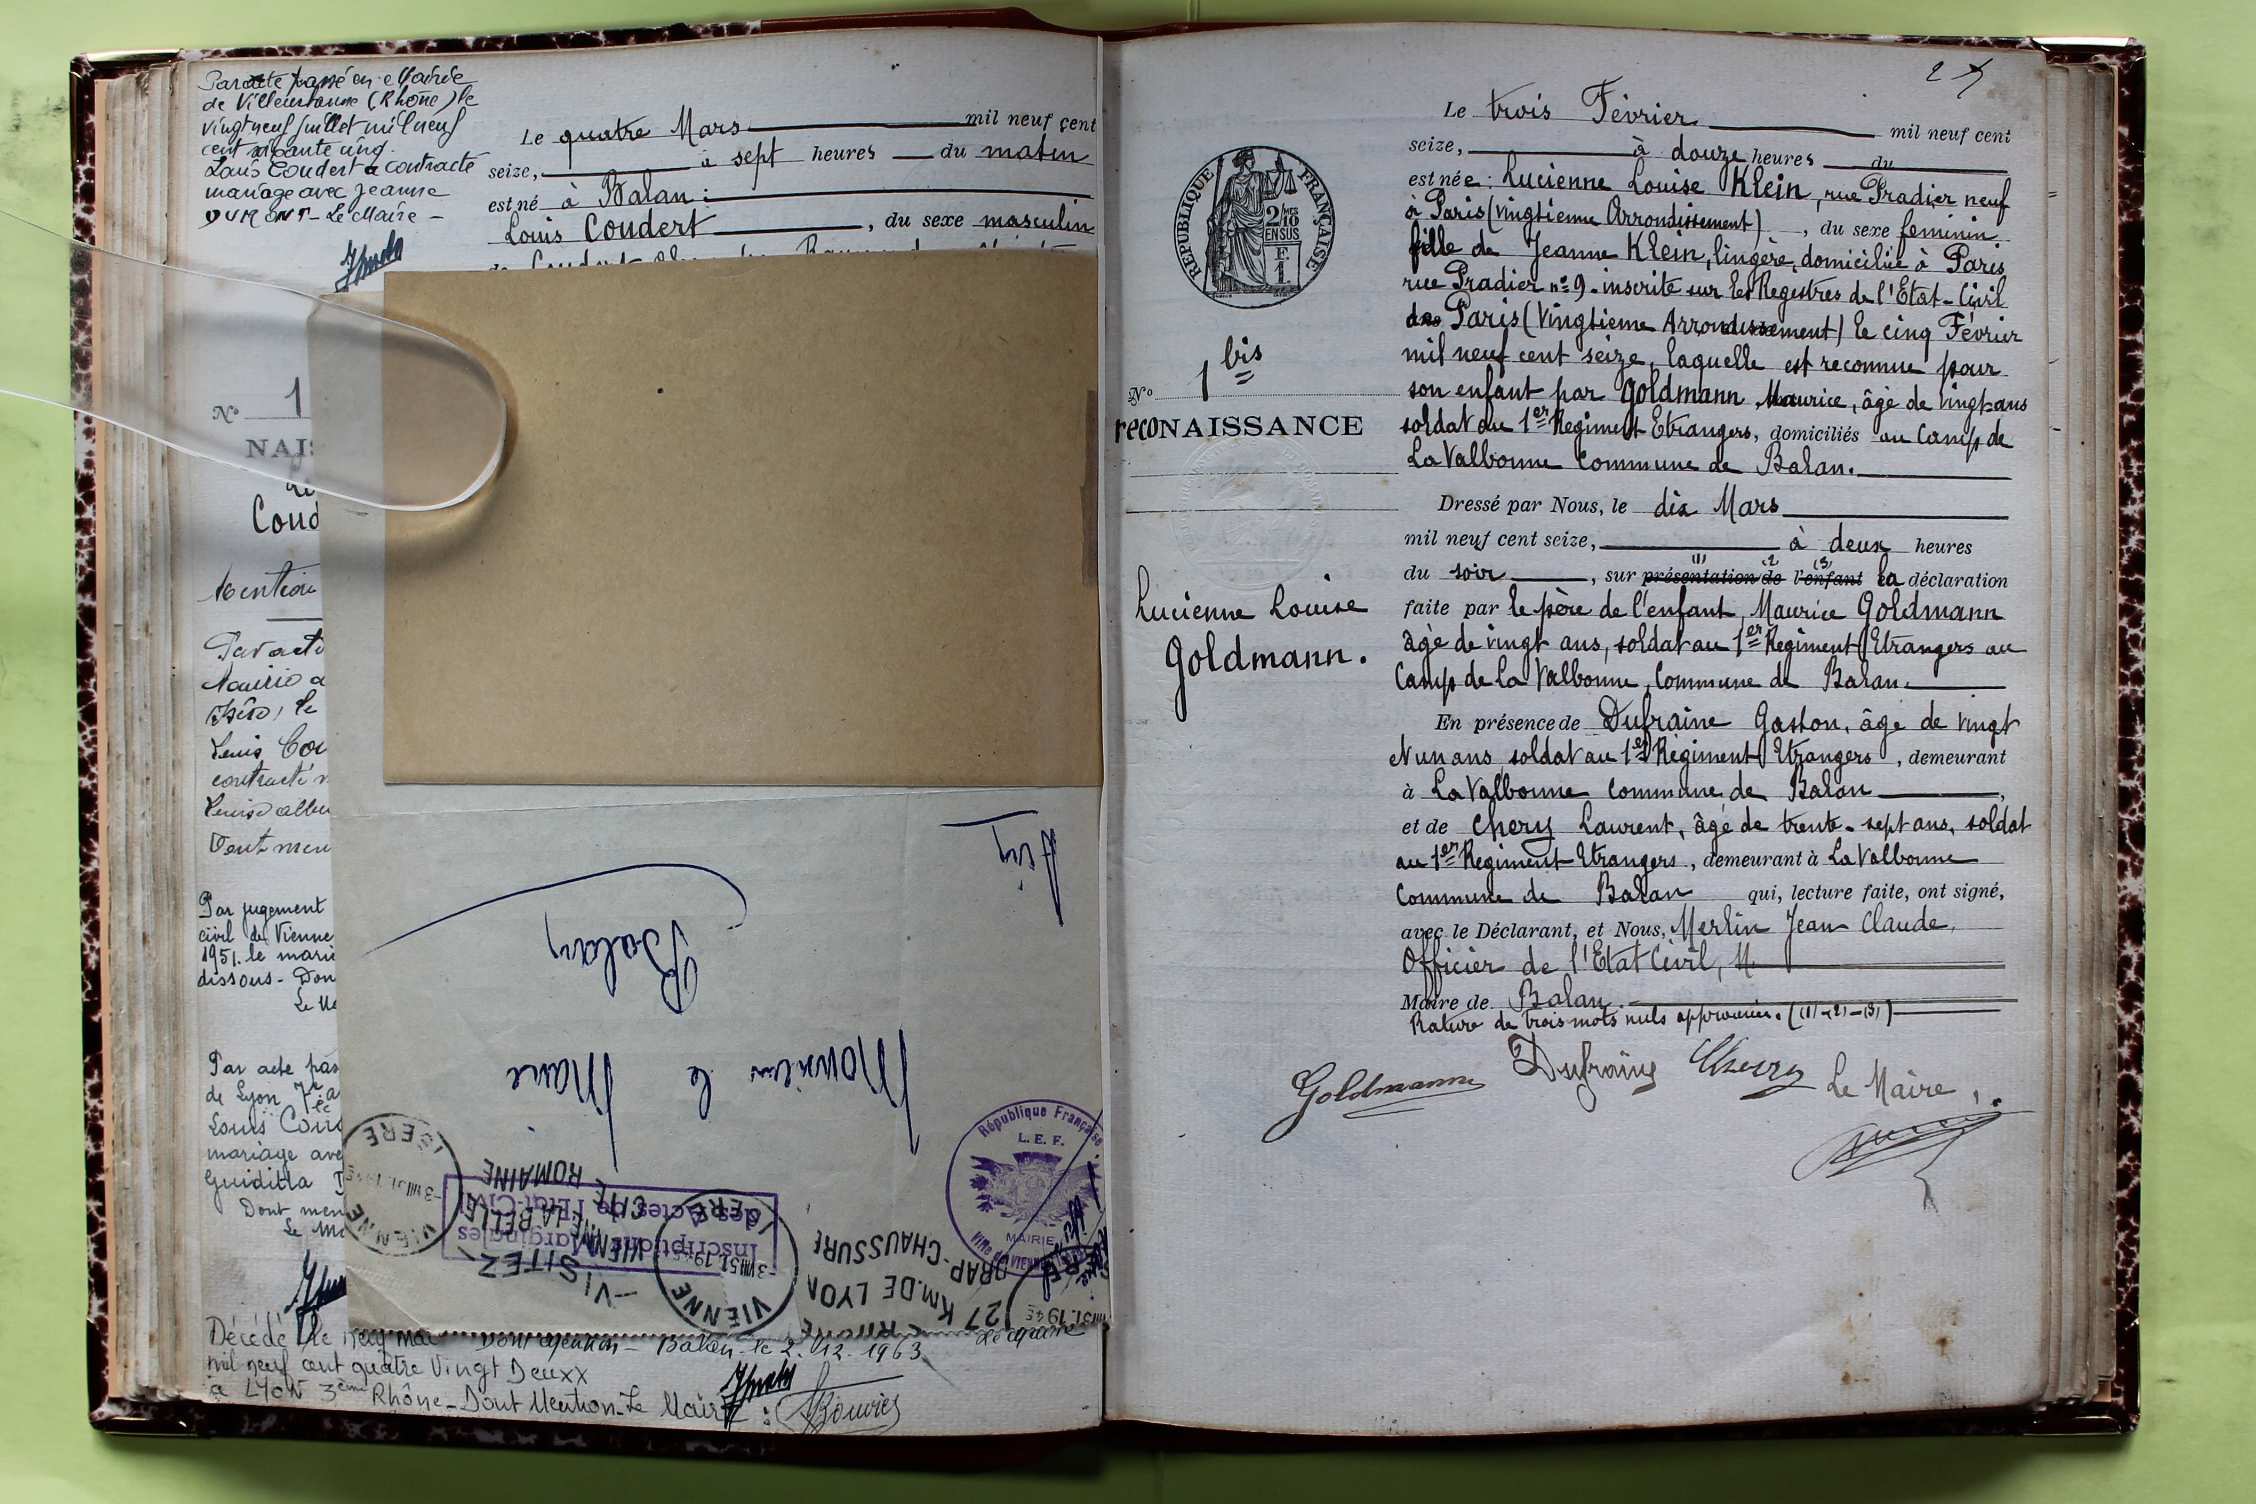 Par acte passé en Mairie
de Villeurbanne (Rhône) le
vingt neuf juillet mil neuf
cent soixante cinq.
Louis Coudert a contracté
mariage avec Jeanne
DUMONT - Le Maire -
Le quatre Mars mil neuf cent
seize, à sept heures du matin
est né à Balan :
Louis Coudert, du sexe masculin
N° 1
NAIS
Coud
Mention
Par acte
Mairie
(Isère) le
Louis Cou
contracté
Dont men
Par jugement
civil de Vienne
1951. le maria
dissous - Don
Le Ma
Par acte pas
de Lyon 7e a
Louis Coud
mariage ave
Guiditta
Dont men
Le Ma
Ain
Balan
Monsieur le Maire
République Française
L. E. F.
MAIRIE
Ville de VIENNE
Inscriptions Marginales
des Actes de l'Etat-Civil
VIENNE
ISERE
VISITEZ
VIENNE LA BELLE
CITE
ROMAINE
VIENNE
ISERE
27 KM. DE LYON
DRAP-CHAUSSURE
Dont mention - Balan le 2. 12. 1963
Décédé le neuf mai
mil neuf cent quatre Vingt Deuxx
à LYON 3ème Rhône - Dont Mention - Le Maire :
Bouvier
2
Le trois Février mil neuf cent
seize, à douze heures du
est née : Lucienne Louise Klein, rue Pradier neuf
à Paris (vingtième Arrondissement), du sexe feminin
fille de Jeanne Klein, lingère, domiciliée à Paris
rue Pradier n° 9. inscrite sur les Regestres de l'Etat-Civil
de Paris (Vingtieme Arrondissement) le cinq Février
mil neuf cent seize, laquelle est reconnue pour
son enfant par Goldmann Maurice, âgé de vingt ans
soldat au 1er Regiment Etrangers, domiciliés au Camp de
La Valbonne Commune de Balan.
RÉPUBLIQUE FRANÇAISE
2/10 MES
EN SUS
F.
1
N° 1 bis
recoNAISSANCE
Lucienne Louise
Goldmann.
Dressé par Nous, le dix Mars
mil neuf cent seize, à deux heures
(1) (2) (3)
du soir, sur présentation de l'enfant la déclaration
faite par le père de l'enfant, Maurice Goldmann
âgé de vingt ans, soldat au 1er Regiment Etrangers au
Camp de La Valbonne, Commune de Balan.
En présence de Dufraine Gaston, âgé de vingt
et un ans, soldat au 1er Régiment Etrangers, demeurant
à La Valbonne Commune de Balan,
et de Chery Laurent, âgé de trente-sept ans, soldat
au 1er Regiment Etrangers, demeurant à La Valbonne
Commune de Balan qui, lecture faite, ont signé,
avec le Déclarant, et Nous, Merlin Jean Claude,
Officier de l'Etat Civil,
Maire de Balan.
Rature de trois mots nuls approuvée. (1)-(2)-(3)
Goldmann Dufraine Chery Le Maire,